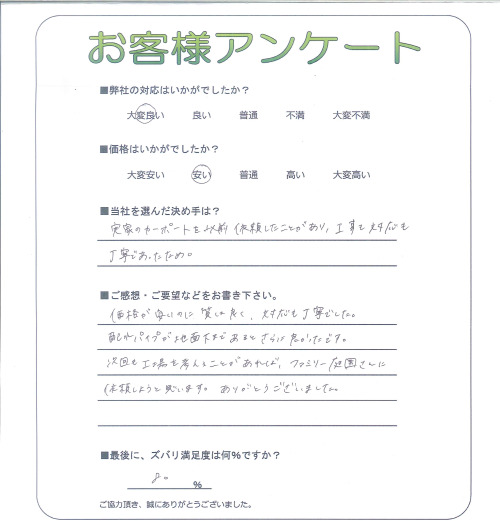 お客様アンケート
■弊社の対応はいかがでしたか？
大変良い 良い 普通 不満 大変不満
■価格はいかがでしたか？
大変安い 安い 普通 高い 大変高い
■当社を選んだ決め手は？
実家のカーポートを以前依頼したことがあり、工事も対応も
丁寧であったため。
■ご感想・ご要望などをお書き下さい。
価格が安いのに質も良く、対応も丁寧でした。
配水パイプが地面下まであるとさらに良かったです。
次回も工場を考えることがあれば、ファミリー庭園さんに
依頼しようと思います。ありがとうございました。
■最後に、ズバリ満足度は何%ですか？
80 %
ご協力頂き、誠にありがとうございました。